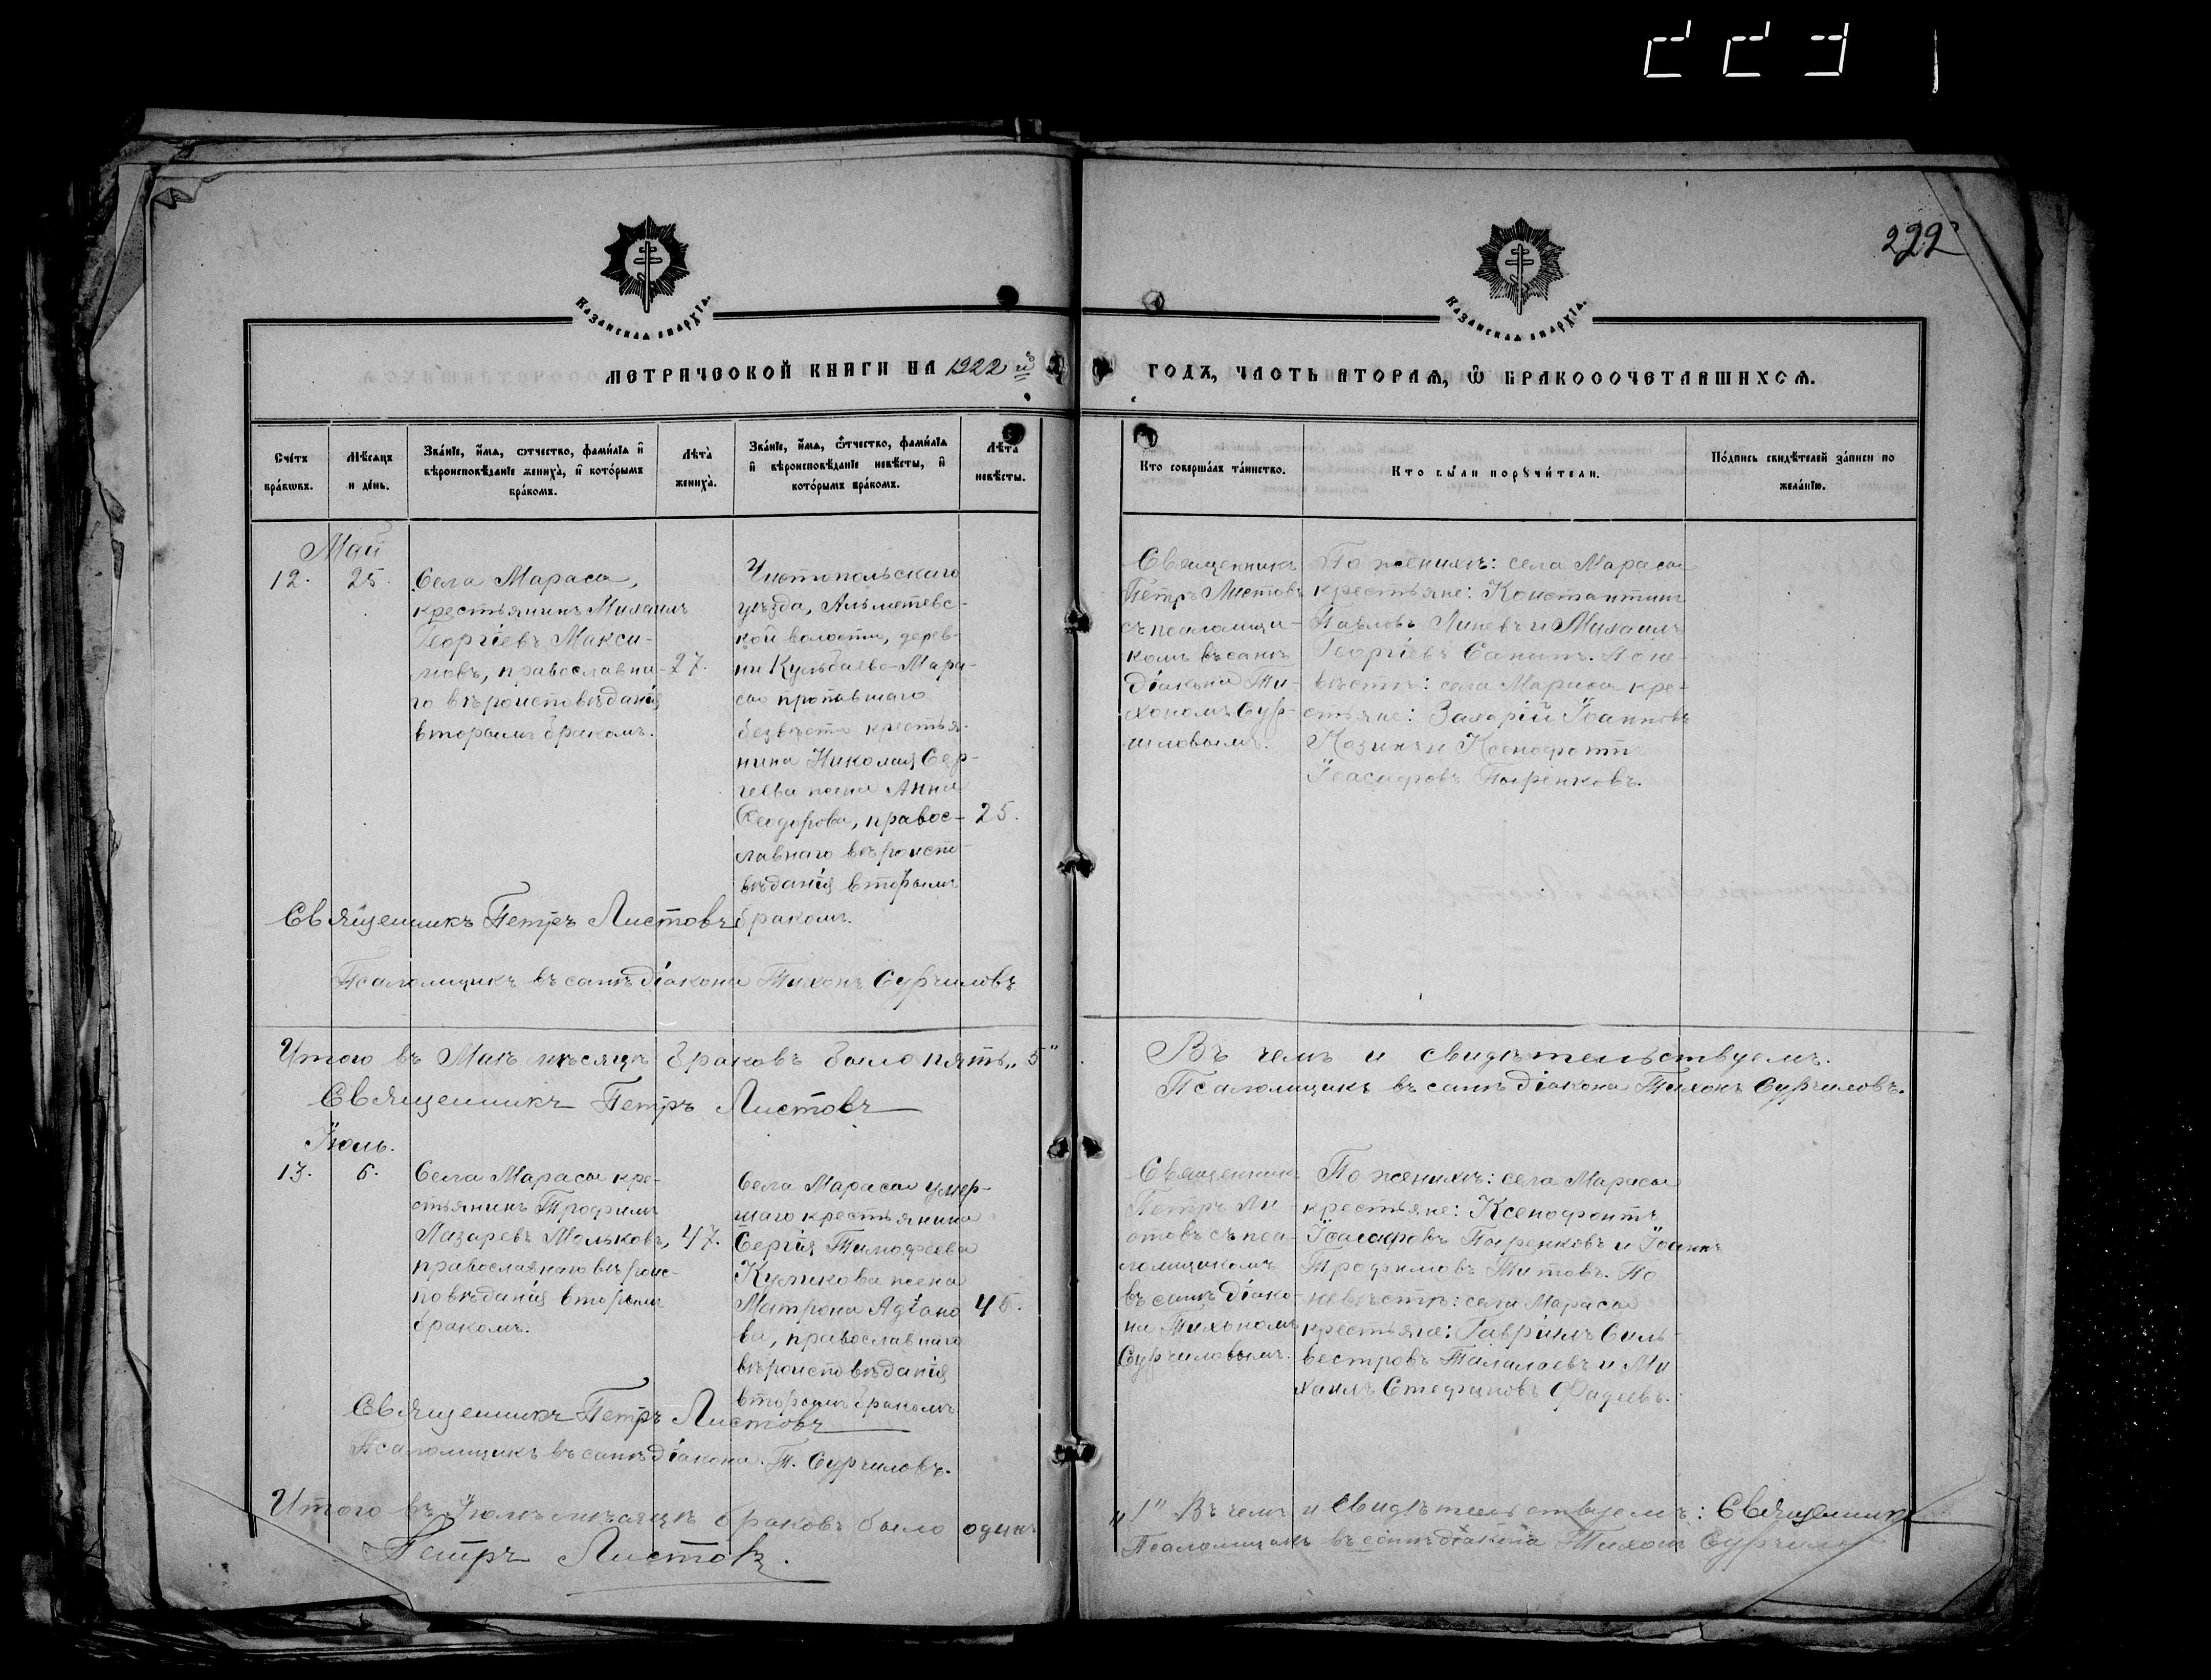 222
Казанская епархіа.
Казанская епархіа.
МЕТРИЧЕСКОЙ КНИГИ НА 1922 й
ГОДЪ, ЧАСТЬ ВТОРАЯ, Ѿ БРАКОСОЧЕТАВШИХСЯ.
Счетъ браковъ.
Мѣсяцъ и день.
Званіе, имя, отчество, фамилія и
вѣроисповѣданіе жениха, и которымъ
бракомъ.
Лѣта
жениха.
Званіе, имя, отчество, фамилія
и вѣроисповѣданіе невѣсты, и
которымъ бракомъ.
Лѣта
невѣсты.
Кто совершалъ таинство.
Кто были поручители.
Подпись свидѣтелей записи по
желанію.
Май
12. 25.
Села Мараса,
крестьянинъ Михаилъ
Георгіевъ Макси-
мовъ, православна-
го вѣроисповѣданія
вторымъ бракомъ.
27.
Чистопольскаго
уѣзда, Альметевс-
кой волости, дерев-
ни Кульбаево-Мара-
сы пропавшаго
безвѣсти крестья-
нина Николая Сер-
геева жена Анна
Ѳеодорова, правос-
лавнаго вѣроиспо-
вѣданія вторымъ
бракомъ.
25.
Священникъ
Петръ Листовъ
съ псаломщи-
комъ въ санѣ
діакона Ти-
хономъ Сур-
чиловымъ.
По женихѣ: села Мараса
крестьяне: Константинъ
Павловъ Линевъ и Михаилъ
Георгіевъ Сапитъ. По не-
вѣстѣ: села Мараса кре-
стьяне: Захарій Іоанновъ
Козинъ и Ксенофонтъ
Іоасафовъ Пыренковъ.
Священникъ Петръ Листовъ
Псаломщикъ въ санѣ діакона Тихонъ Сурчиловъ
Итого въ Маѣ мѣсяцѣ браковъ было пять „5"
Священникъ Петръ Листовъ
Въ чемъ и свидѣтельствуемъ.
Псаломщикъ въ санѣ діакона Тихонъ Сурчиловъ.
Іюль.
13. 6.
Села Мараса кре-
стьянинъ Трофимъ
Лазаревъ Мальковъ,
православнаго вѣроис-
повѣданія вторымъ
бракомъ.
47.
Села Мараса умер-
шаго крестьянина
Сергія Тимофеева
Куликова жена
Матрона Адіано
ва, православнаго
вѣроисповѣданія
вторымъ бракомъ
45.
Священникъ
Петръ Ли-
стовъ съ пса-
ломщикомъ
въ санѣ діако-
на Тихономъ
Сурчиловымъ.
По женихѣ: села Мараса
крестьяне: Ксенофонтъ
Іоасафовъ Пыренковъ и Іоаннъ
Трофимовъ Титовъ. По
невѣстѣ: села Мараса
крестьяне: Гавріилъ Силь-
вестровъ Талалаевъ и Ми
хаилъ Стефановъ Фадеевъ.
Священникъ Петръ Листовъ
Псаломщикъ въ санѣ діакона. Т. Сурчиловъ.
Итого въ Іюлѣ мѣсяцѣ браковъ было одинъ
„1" Въ чемъ и свидѣтельствуемъ: Священникъ
Петръ Листовъ.
Псаломщикъ въ санѣ діакона Тихонъ Сурчиловъ